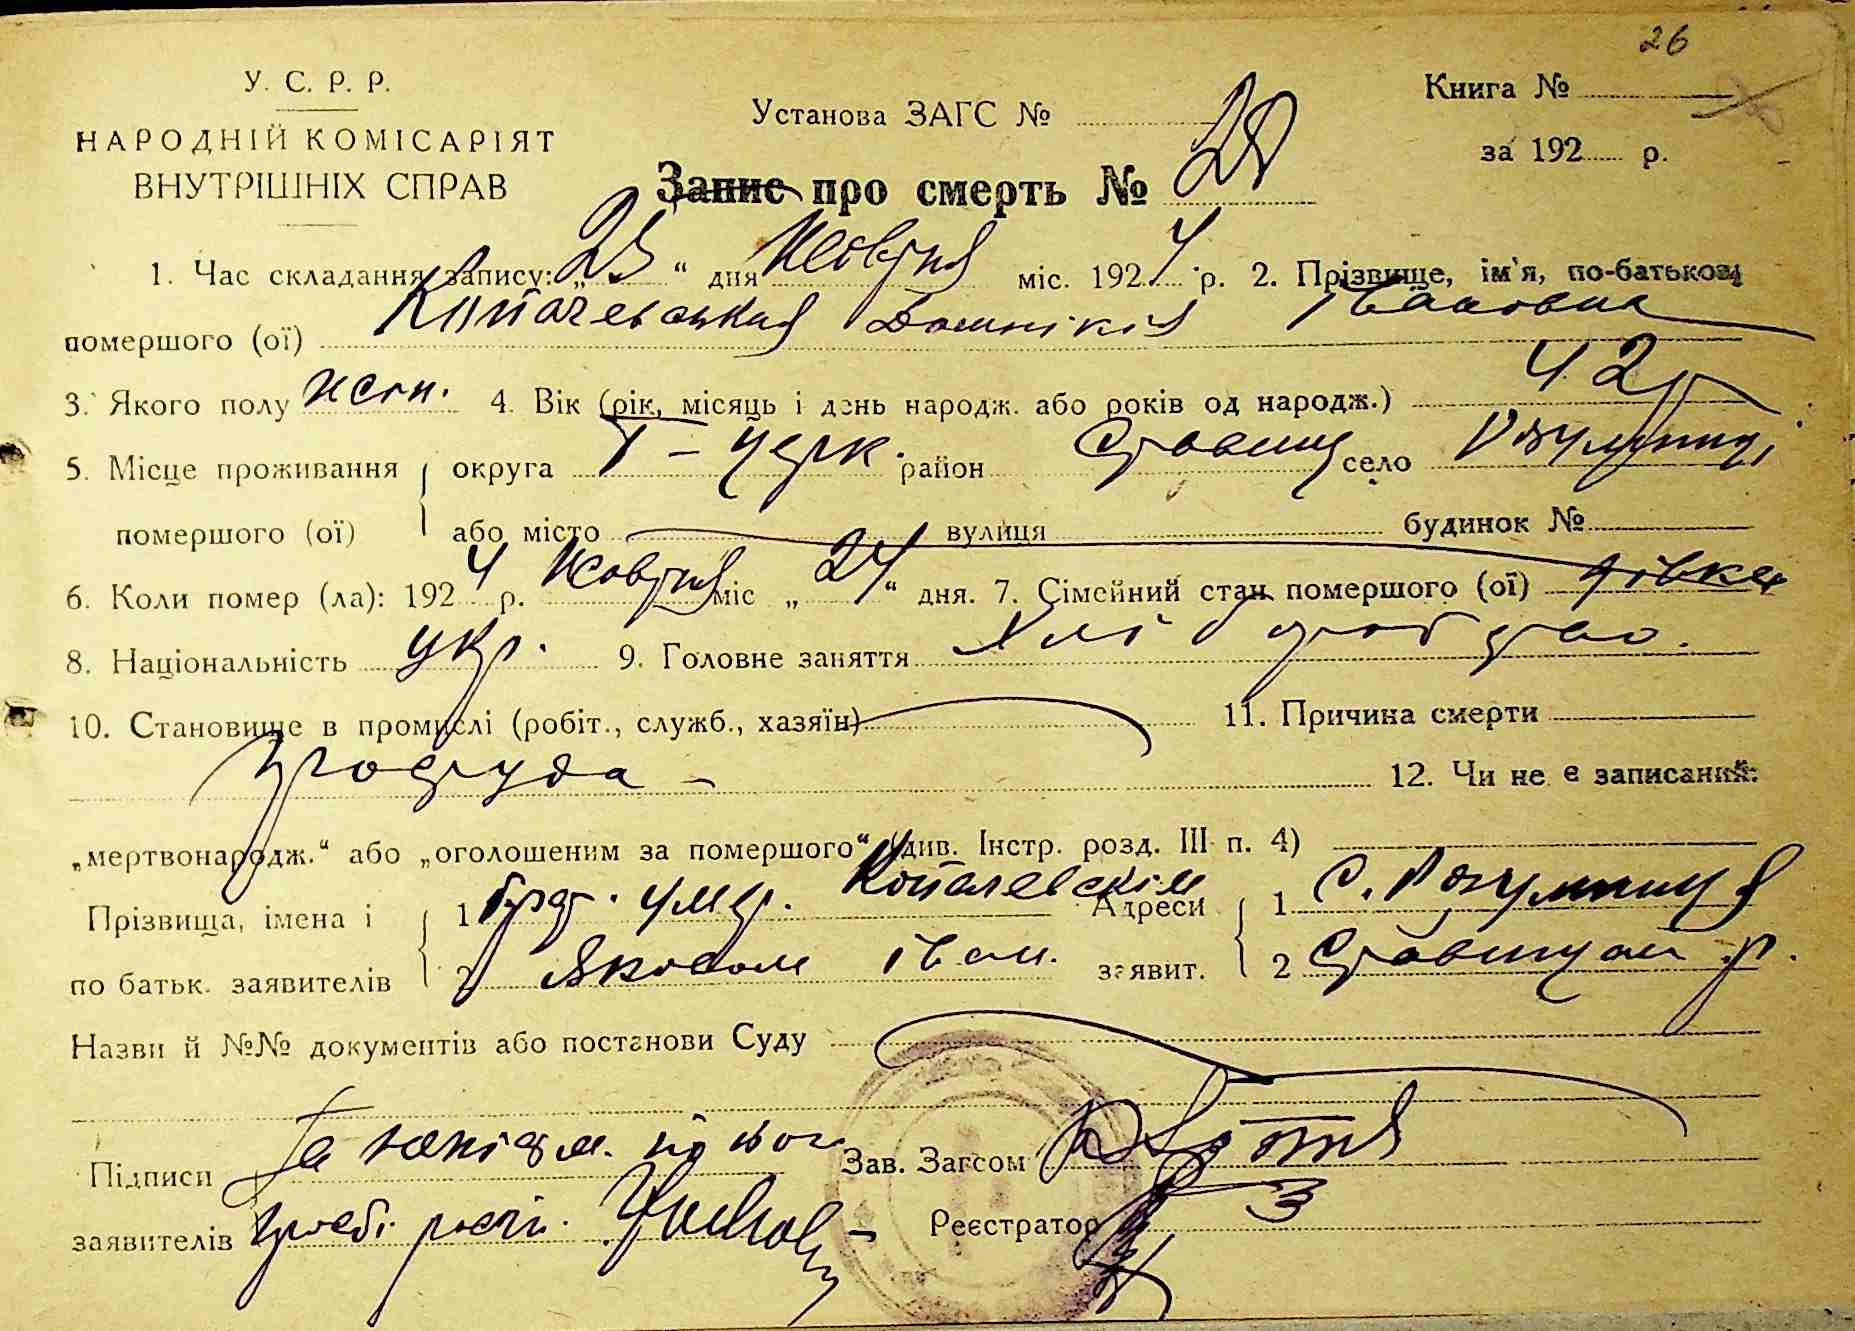 26
У. С. Р. Р.
НАРОДНІЙ КОМІСАРІЯТ
ВНУТРІШНІХ СПРАВ
Установа ЗАГС №
Книга №
за 192 р.
Запис про смерть № 28
1. Час складання запису: „25“ дня Жовтня міс. 1924 р. 2. Прізвище, ім'я, по-батькові
помершого (ої) Копачевська Домнікія Івановна
3. Якого полу жін. 4. Вік (рік, місяць і день народж. або років од народж.) 42 р
5. Місце проживання округа Б-Церк. район Ставищ село Розумниці
помершого (ої) або місто вулиця будинок №
6. Коли помер (ла): 1924 р. Жовтня міс „24“ дня. 7. Сімейний стан помершого (ої) дівка
8. Національність укр. 9. Головне заняття Хліборобство.
10. Становище в промислі (робіт., служб., хазяїн) 11. Причина смерти
простуда 12. Чи не є записаний:
„мертвонародж.“ або „оголошеним за помершого“ (див. Інстр. розд. III п. 4)
Прізвища, імена і 1 брат. умер. Копачевскій Адреси 1 с. Розумниця
по батьк. заявителів 2 Іван. заявит. 2 Ставищан. р.
Назви й №№ документів або постанови Суду
Підписи За Зав. Загсом
заявителів прозьбі Реєстратор